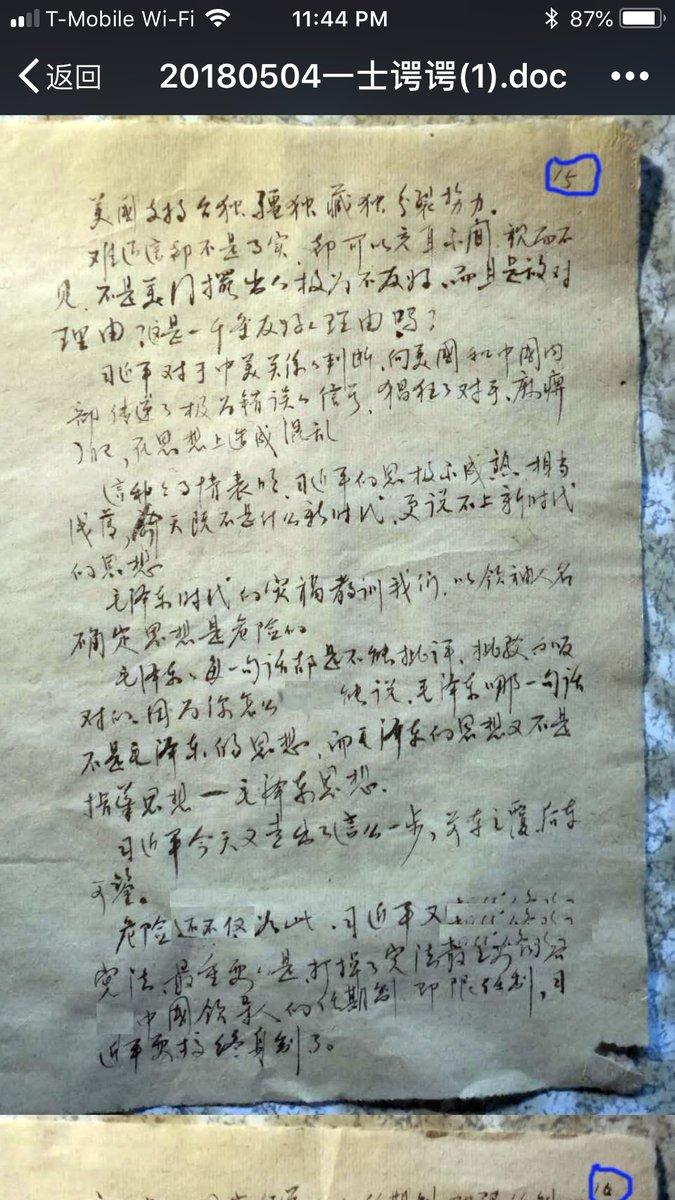 T-Mobile Wi-Fi 11:44 PM 87%
返回 20180504一士谔谔(1).doc
15
美国支持台独、疆独、藏独、分裂势力。
难道這都不是了实,都可以充耳不闻,視而不
见,不是美门摆出的极为不友好,而且是敌对
理由?這是一千条友好的理由吗?
习近平对于中美关係的判断,向美國和中國内
部传递了极为错误的信号,猖狂了对手,麻痹
了自己,在思想上造成混乱
這种种事情表明,习近平的思想不成熟、相当
浅薄,今天既不是什么新时代,更说不上新时代
的思想
毛泽东时代的实祸教训我们,以领袖人名
确定思想是危险的
毛泽东的每一句话都是不能批评、批驳和反
对的,因为你怎么 能说,毛泽东哪一句话
不是毛泽东的思想,而毛泽东的思想又不是
指導思想一毛泽东思想.
习近平今天又走出了這么一步,前车之覆,后车
可鉴。
危险还不仅如此,习近平又
宪法,最重要的是,打掉了宪法
中國领导人的任期制 即限任制,习
近平要搞终身制了。